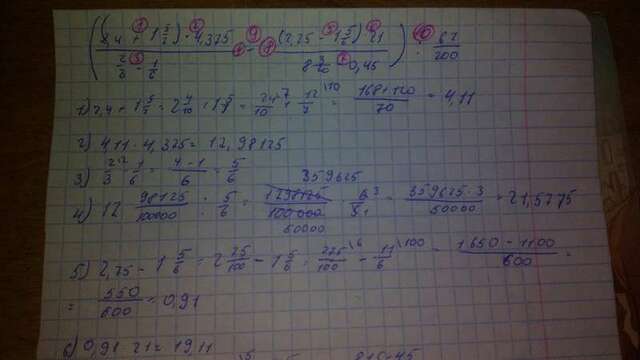 ( (2,4 + 1 5/7) · 4,375 / 2/3 - 1/6 - (2,75 - 1 5/6) · 21 / 8 3/20 - 0,45 ) : 67/200
1) 2,4 + 1 5/7 = 2 4/10 + 1 5/7 = 24/10 \7 + 12/7 \10 = 168+120/70 = 4,11
2) 4,11 · 4,375 = 17,98125
3) 2/3 \2 - 1/6 = 4-1/6 = 5/6
359625
4) 17 98125/100000 : 5/6 = 1798125/100000 · 6/5 = 359625 · 3/50000 = 21,5775
50000
5) 2,75 - 1 5/6 = 2 75/100 - 1 5/6 = 275/100 \6 - 11/6 \100 = 1650 - 1100/600 =
= 550/600 = 0,91
6) 0,91 · 21 = 19,11